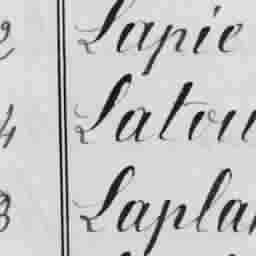 2 Lapie
4 Latou
3 Laplan